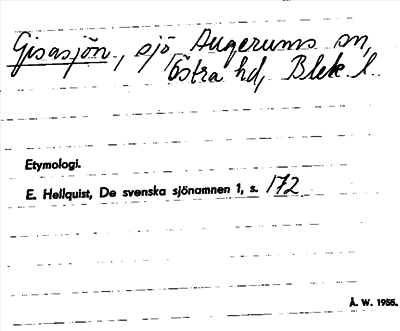 Gisasjön, sjö Augerums sn,
Östra hd, Blek. l.
Etymologi.
E. Hellquist, De svenska sjönamnen 1, s. 172
Å. W. 1955.